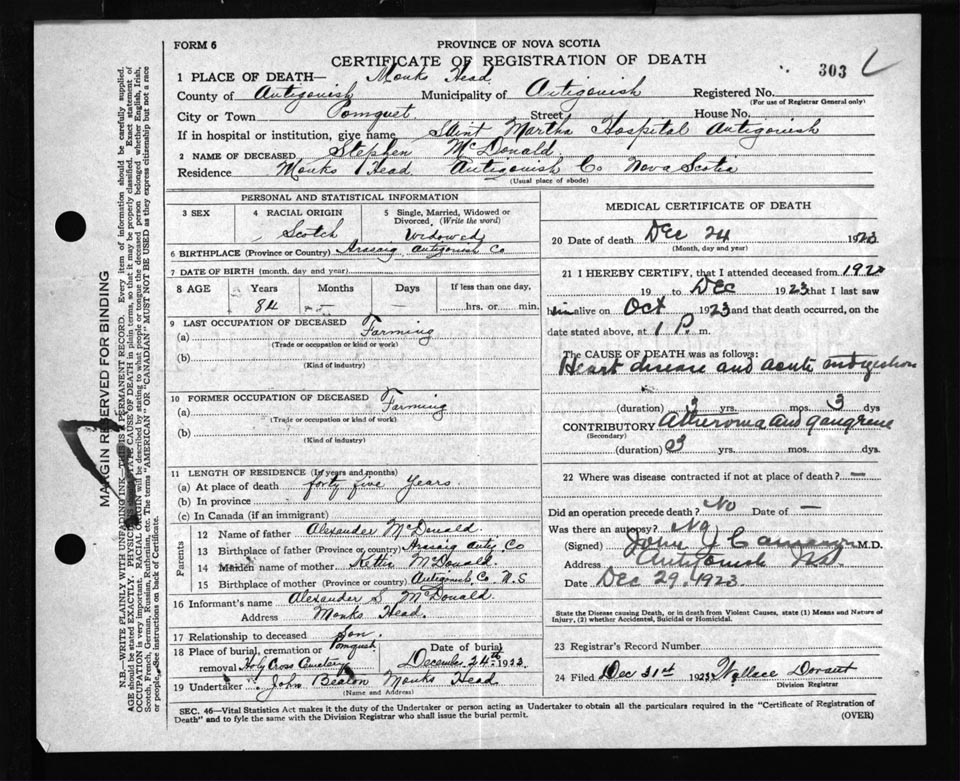 FORM 6
PROVINCE OF NOVA SCOTIA
CERTIFICATE OF REGISTRATION OF DEATH
303
1 PLACE OF DEATH— Monks Head
County of Antigonish Municipality of Antigonish Registered No.
(For use of Registrar General only)
City or Town Pomquet Street House No.
If in hospital or institution, give name Saint Martha Hospital Antigonish
2 NAME OF DECEASED Stephen McDonald
Residence Monks Head Antigonish Co Nova Scotia
(Usual place of abode)
PERSONAL AND STATISTICAL INFORMATION
3 SEX
4 RACIAL ORIGIN
Scotch
5 Single, Married, Widowed or Divorced, (Write the word)
Widowed
6 BIRTHPLACE (Province or Country) Arasaig Antigonish Co
7 DATE OF BIRTH (month, day and year)
8 AGE Years Months Days If less than one day,
84 — — hrs. or min.
9 LAST OCCUPATION OF DECEASED
(a) Farming
(Trade or occupation or kind or work)
(b)
(Kind of industry)
10 FORMER OCCUPATION OF DECEASED
(a) Farming
(Trade or occupation or kind of work)
(b)
(Kind of industry)
11 LENGTH OF RESIDENCE (In years and months)
(a) At place of death forty five Years
(b) In province
(c) In Canada (if an immigrant)
Parents
12 Name of father Alexander McDonald
13 Birthplace of father (Province or country) Arasaig Anty. Co
14 Maiden name of mother McDonald
15 Birthplace of mother (Province or country) Antigonish Co. N.S
16 Informant's name Alexander S. McDonald
Address Monks Head.
17 Relationship to deceased Son.
18 Place of burial, cremation or removal Holy Cross Cemetery
Date of burial
December 24th 1923
19 Undertaker John Beaton Monks Head
(Name and Address)
MEDICAL CERTIFICATE OF DEATH
20 Date of death Dec 24 1923
(Month, day and year)
21 I HEREBY CERTIFY, that I attended deceased from
19 to Dec 1923 that I last saw
him alive on Oct 1923 and that death occurred, on the
date stated above, at 1 P. m.
The CAUSE OF DEATH was as follows:
Heart disease and acute indigestion
(duration) 3 yrs. mos. 3 dys
CONTRIBUTORY Atheroma and gangrene
(Secondary)
(duration) 3 yrs. mos. dys.
22 Where was disease contracted if not at place of death? —
Did an operation precede death? No Date of —
Was there an autopsy? No
(Signed) John J M.D.
Address Antigonish N.S.
Date Dec 29. 1923.
State the Disease causing Death, or in death from Violent Causes, state (1) Means and Nature of Injury, (2) whether Accidental, Suicidal or Homicidal.
23 Registrar's Record Number
24 Filed Dec 31st 1923 Wallace
Division Registrar
SEC. 46—Vital Statistics Act makes it the duty of the Undertaker or person acting as Undertaker to obtain all the particulars required in the "Certificate of Registration of
Death" and to fyle the same with the Division Registrar who shall issue the burial permit.
(OVER)
MARGIN RESERVED FOR BINDING
N.B.—WRITE PLAINLY WITH UNFADING INK—THIS IS A PERMANENT RECORD. Every item of information should be carefully supplied.
AGE should be stated EXACTLY. PHYSICIANS should state CAUSE OF DEATH in plain terms, so that it may be properly classified. Exact statement of
OCCUPATION is very important. RACIAL ORIGIN will be described by stating to what people or tongue the deceased person belonged whether English, Irish,
Scotch, French, German, Russian, Ruthenian, etc. The terms "AMERICAN" OR "CANADIAN" MUST NOT BE USED as they express citizenship but not a race
or people. See instructions on back of Certificate.